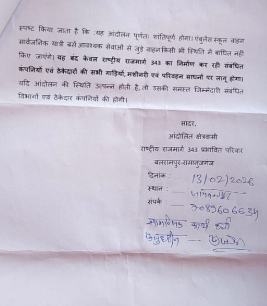 स्पष्ट किया जाता है कि यह आंदोलन पूर्णतः शांतिपूर्ण होगा। एंबुलेंस स्कूल वाहन
सार्वजनिक यात्री बसें आवश्यक सेवाओं से जुड़े वाहन किसी भी स्थिति में बाधित नहीं
किए जाएंगे। यह बंद केवल राष्ट्रीय राजमार्ग 343 का निर्माण कर रही संबंधित
कंपनियों एवं ठेकेदारों की सभी गाड़ियां, मशीनरी एवं परिवहन साधनों पर लागू होगा।
यदि आंदोलन की स्थिति उत्पन्न होती है, तो उसकी समस्त जिम्मेदारी संबंधित
विभागों एवं ठेकेदार कंपनियों की होगी।
सादर,
आंदोलित क्षेत्रवासी
राष्ट्रीय राजमार्ग 343 प्रभावित परिवार
बलरामपुर-रामानुजगंज
दिनांक : 13/02/2026
स्थान :
संपर्क